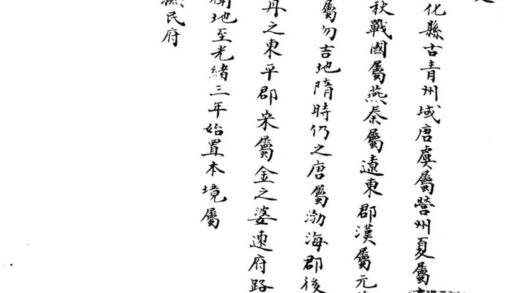 化縣古青州域唐虞屬營州夏屬
秋戰國屬燕秦屬遼東郡漢屬元
屬勿吉地隋時仍之唐屬渤海郡後
丹之東平郡宋屬金之婆速府路
地至光緒三年始置本境屬
民府